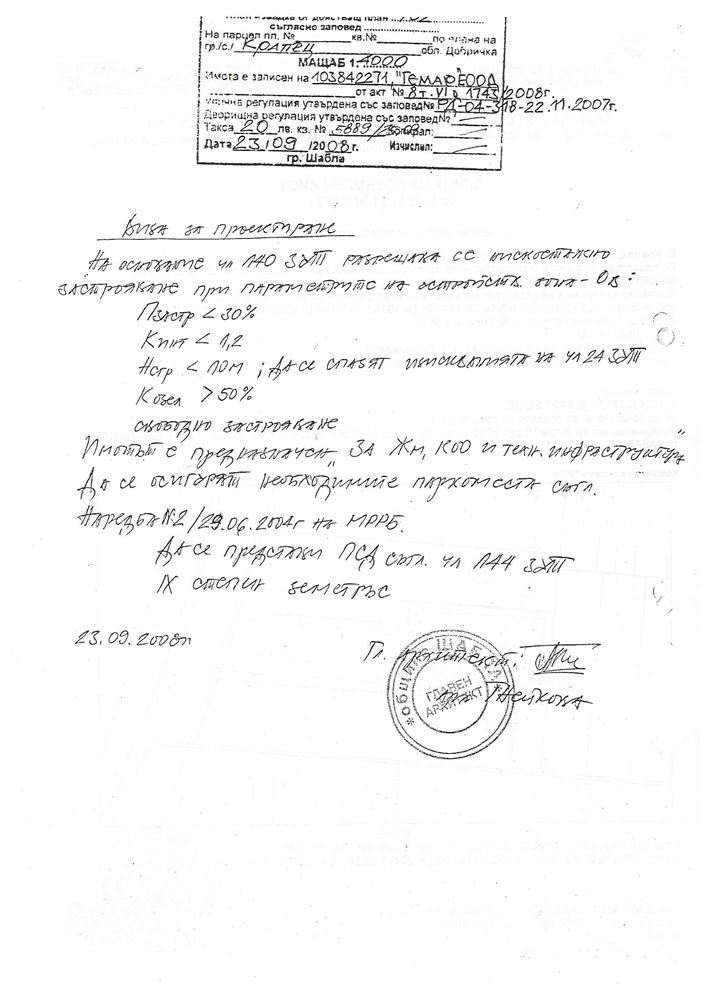 План извадка от действащ план
съгласно заповед
На парцел пл. № кв.№ по плана на
гр./с./ Крапец обл. Добричка
МАЩАБ 1:1000
Имота е записан на 103842271, "ГЕМАР" ЕООД
от акт № 8 т. VI р 1743/2008г.
Улична регулация утвърдена със заповед№ РД-04-318-22.11.2007г.
Дворищна регулация утвърдена със заповед№
Такса 20 лв. кв. № 5889/ Копирал:
Дата 23/09/2008г. Изчислил:
гр. Шабла
Виза за проектиране
На основание чл 140 ЗУТ разрешава се нискоетажно
застрояване при параметрите на устройств. зона - Ов:
Пзастр < 30%
Кинт < 1,2
Нстр < 10м ; Да се спазят изискванията на чл 24 ЗУТ
Козел > 50%
свободно застрояване
Имотът е предназначен "За Жм, КОО и техн. инфраструктура"
Да се осигурят необходимите паркоместа съгл.
Наредба №2/29.06.2004г на МРРБ.
Да се представи ПСД съгл. чл 144 ЗУТ
IX степен земетръс
23.09.2008г
Гл. архитект:
арх. Нейкова
ОБЩИНА ШАБЛА
ГЛАВЕН
АРХИТЕКТ